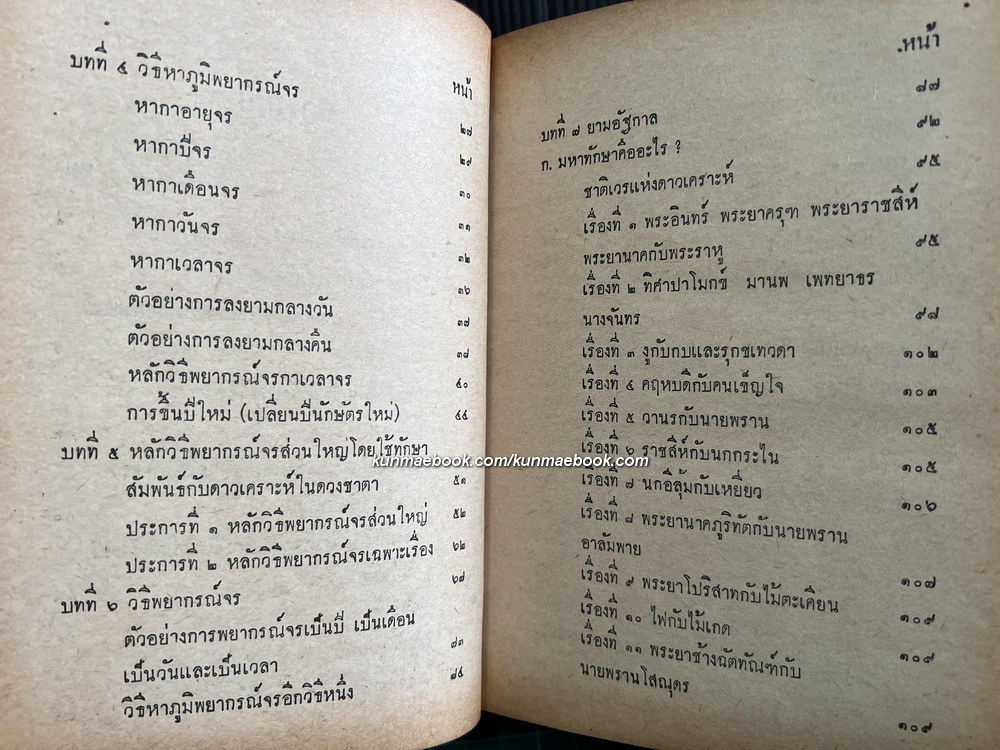 หน้า
บทที่ ๔ วิธีหาภูมิพยากรณ์จร ๒๗
หากาอายุจร ๒๙
หากาปีจร ๓๐
หากาเดือนจร ๓๑
หากาวันจร ๓๒
หากาเวลาจร ๓๖
ตัวอย่างการลงยามกลางวัน ๓๗
ตัวอย่างการลงยามกลางคืน ๓๘
หลักวิธีพยากรณ์จรกาเวลาจร ๔๐
การขึ้นปีใหม่ (เปลี่ยนปีนักษัตรใหม่) ๔๔
บทที่ ๕ หลักวิธีพยากรณ์จรส่วนใหญ่โดยใช้ทักษา
สัมพันธ์กับดาวเคราะห์ในดวงชาตา ๕๑
ประการที่ ๑ หลักวิธีพยากรณ์จรส่วนใหญ่ ๕๒
ประการที่ ๒ หลักวิธีพยากรณ์จรเฉพาะเรื่อง ๖๒
บทที่ ๖ วิธีพยากรณ์จร ๖๘
ตัวอย่างการพยากรณ์จรเป็นปี เป็นเดือน
เป็นวันและเป็นเวลา ๘๓
วิธีหาภูมิพยากรณ์จรอีกวิธีหนึ่ง ๘๔
หน้า
บทที่ ๗ ยามอัฐกาล ๘๗
ก. มหาทักษาคืออะไร ? ๙๒
ชาติเวรแห่งดาวเคราะห์ ๙๕
เรื่องที่ ๑ พระอินทร์ พระยาครุฑ พระยาราชสีห์
พระยานาคกับพระราหู ๙๕
เรื่องที่ ๒ ทิศาปาโมกข์ มานพ เพทยาธร
นางจันทร ๙๘
เรื่องที่ ๓ งูกับกบและรุกขเทวดา ๑๐๒
เรื่องที่ ๔ คฤหบดีกับคนเข็ญใจ ๑๐๓
เรื่องที่ ๕ วานรกับนายพราน ๑๐๕
เรื่องที่ ๖ ราชสีห์กับนกกระไน ๑๐๕
เรื่องที่ ๗ นกอีลุ้มกับเหยี่ยว ๑๐๖
เรื่องที่ ๘ พระยานาคภูริทัตกับนายพราน
อาลัมพาย ๑๐๗
เรื่องที่ ๙ พระยาโปริสาทกับไม้ตะเคียน ๑๐๙
เรื่องที่ ๑๐ ไฟกับไม้เกด ๑๐๙
เรื่องที่ ๑๑ พระยาช้างฉัตทัณฑ์กับ
นายพรานโสณุดร ๑๐๙
kunmaebook.com/kunmaebook.com